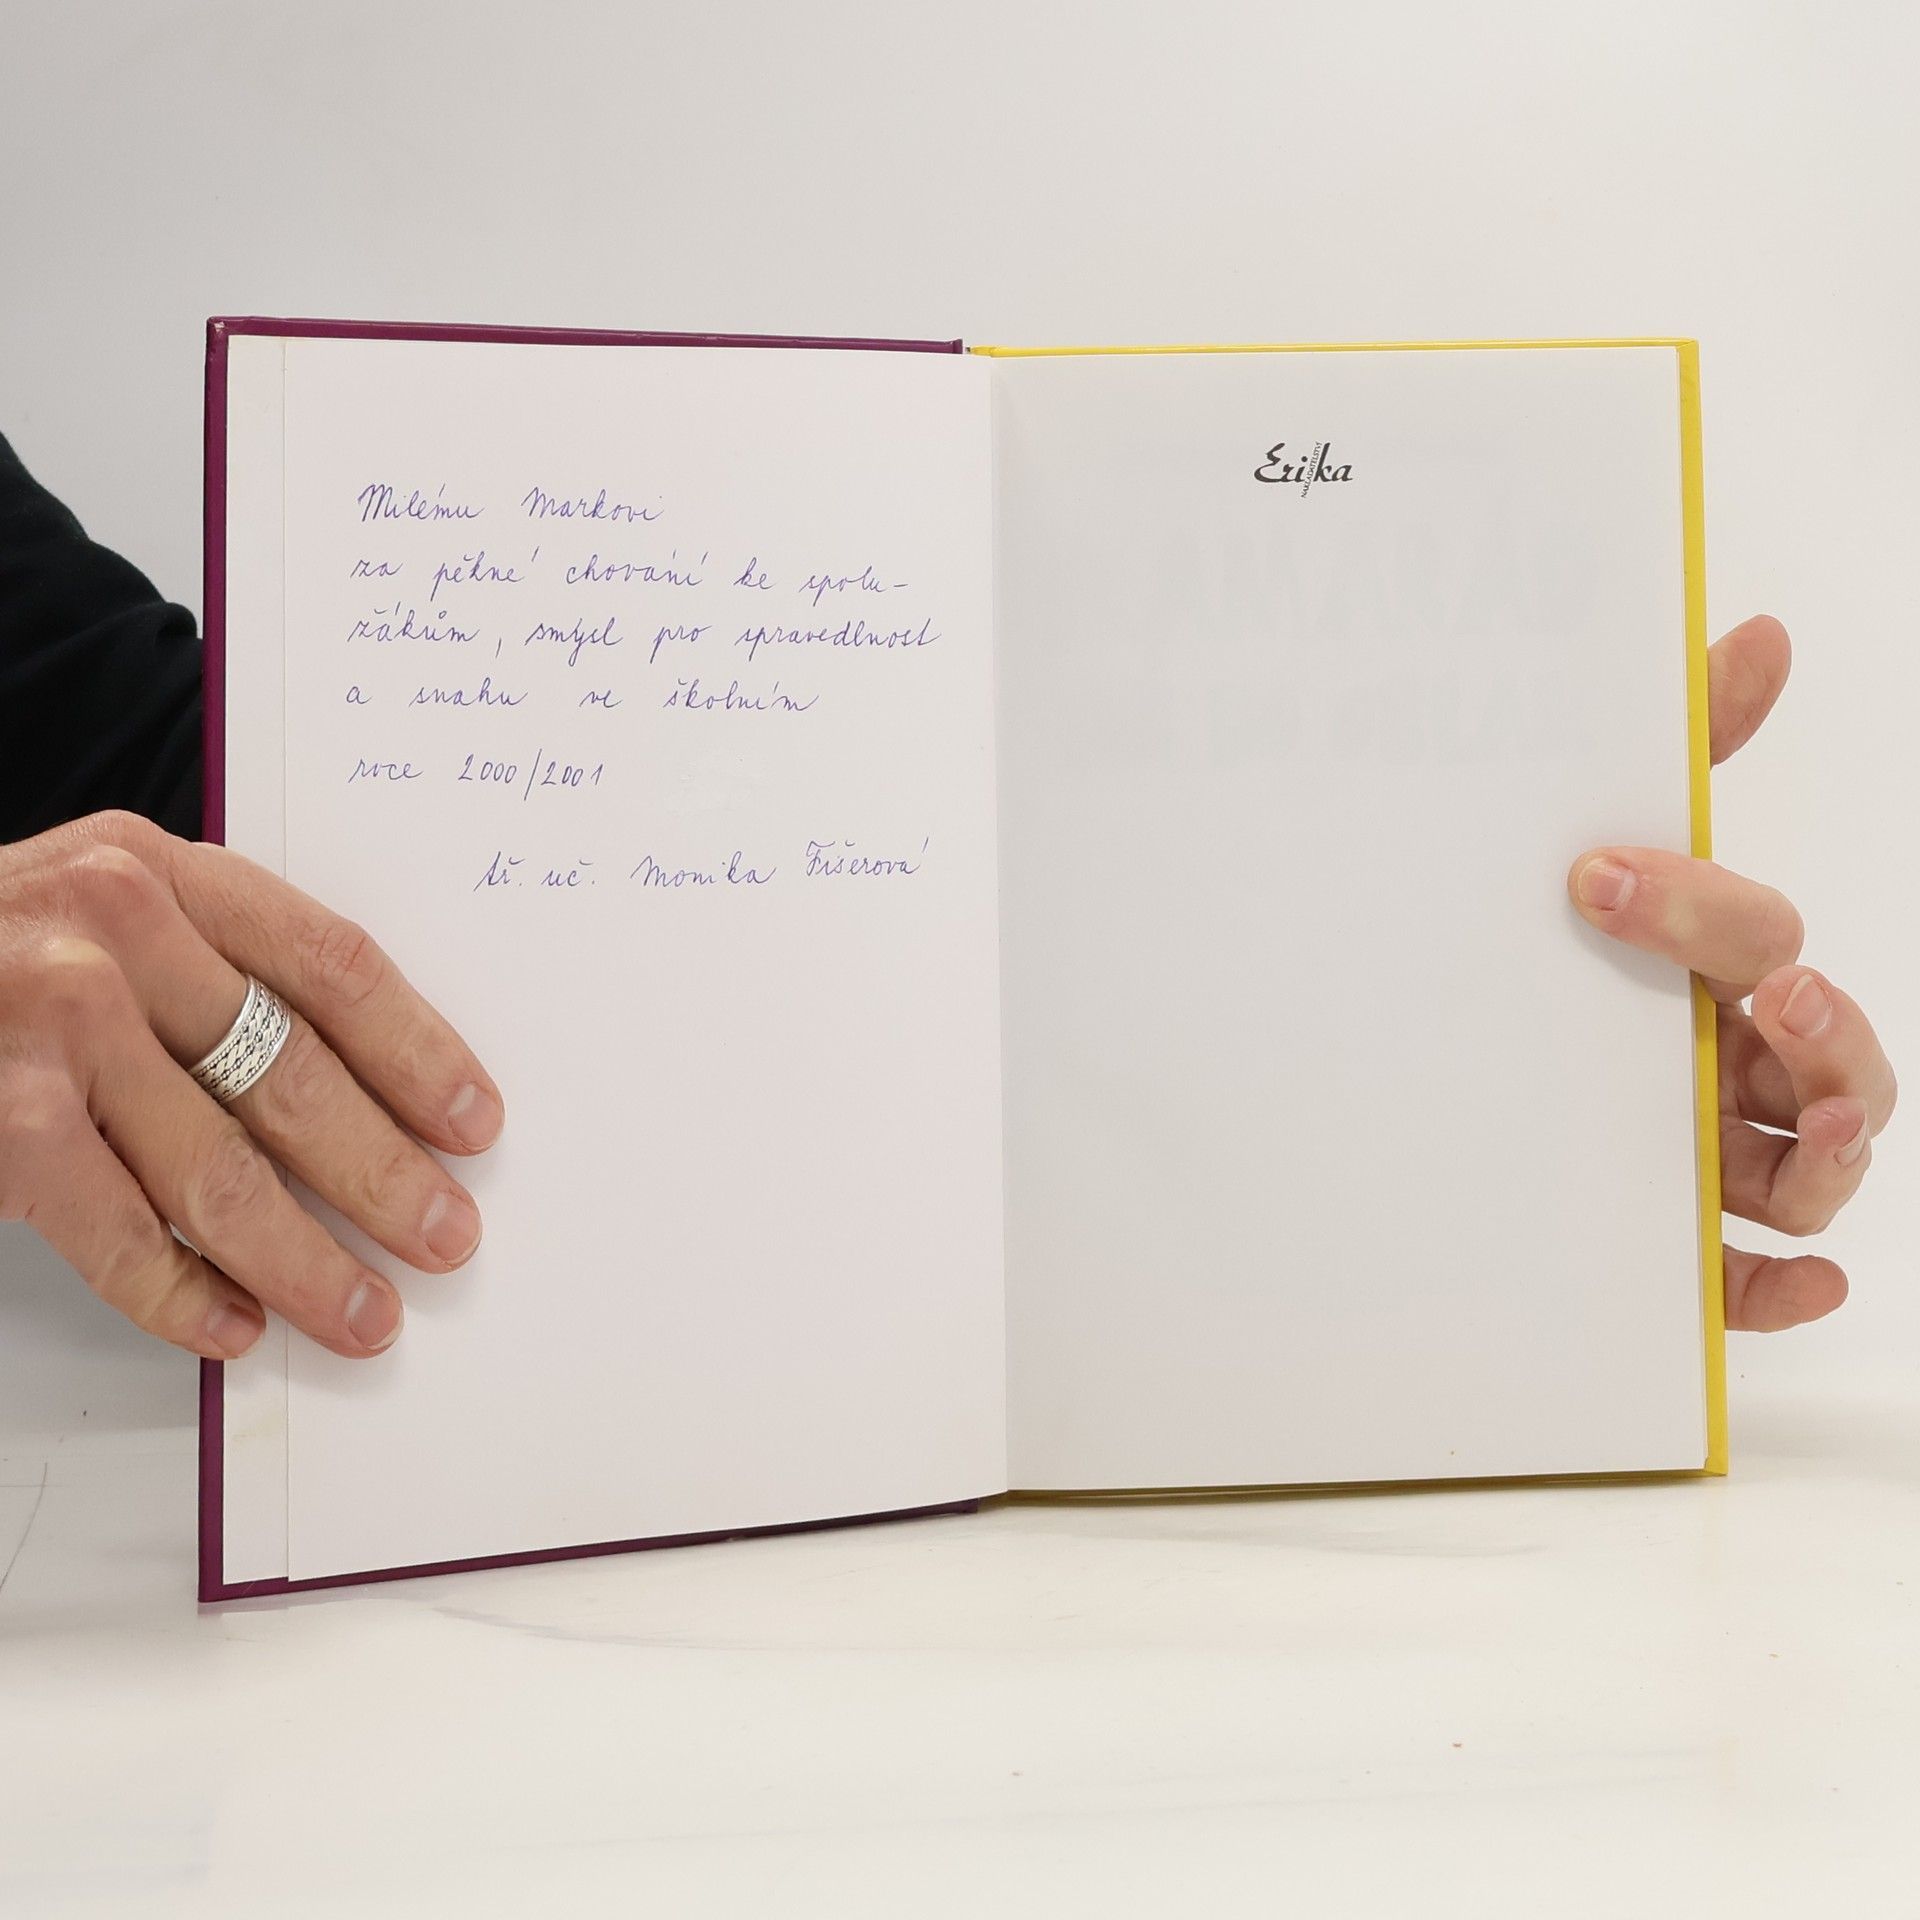 Milému Markovi
za pěkné chování ke spolu-
žákům, smysl pro spravedlnost
a snahu ve školním
roce 2000/2001
tř. uč. Monika Fišerová
Erika
NAKLADATELSTVÍ